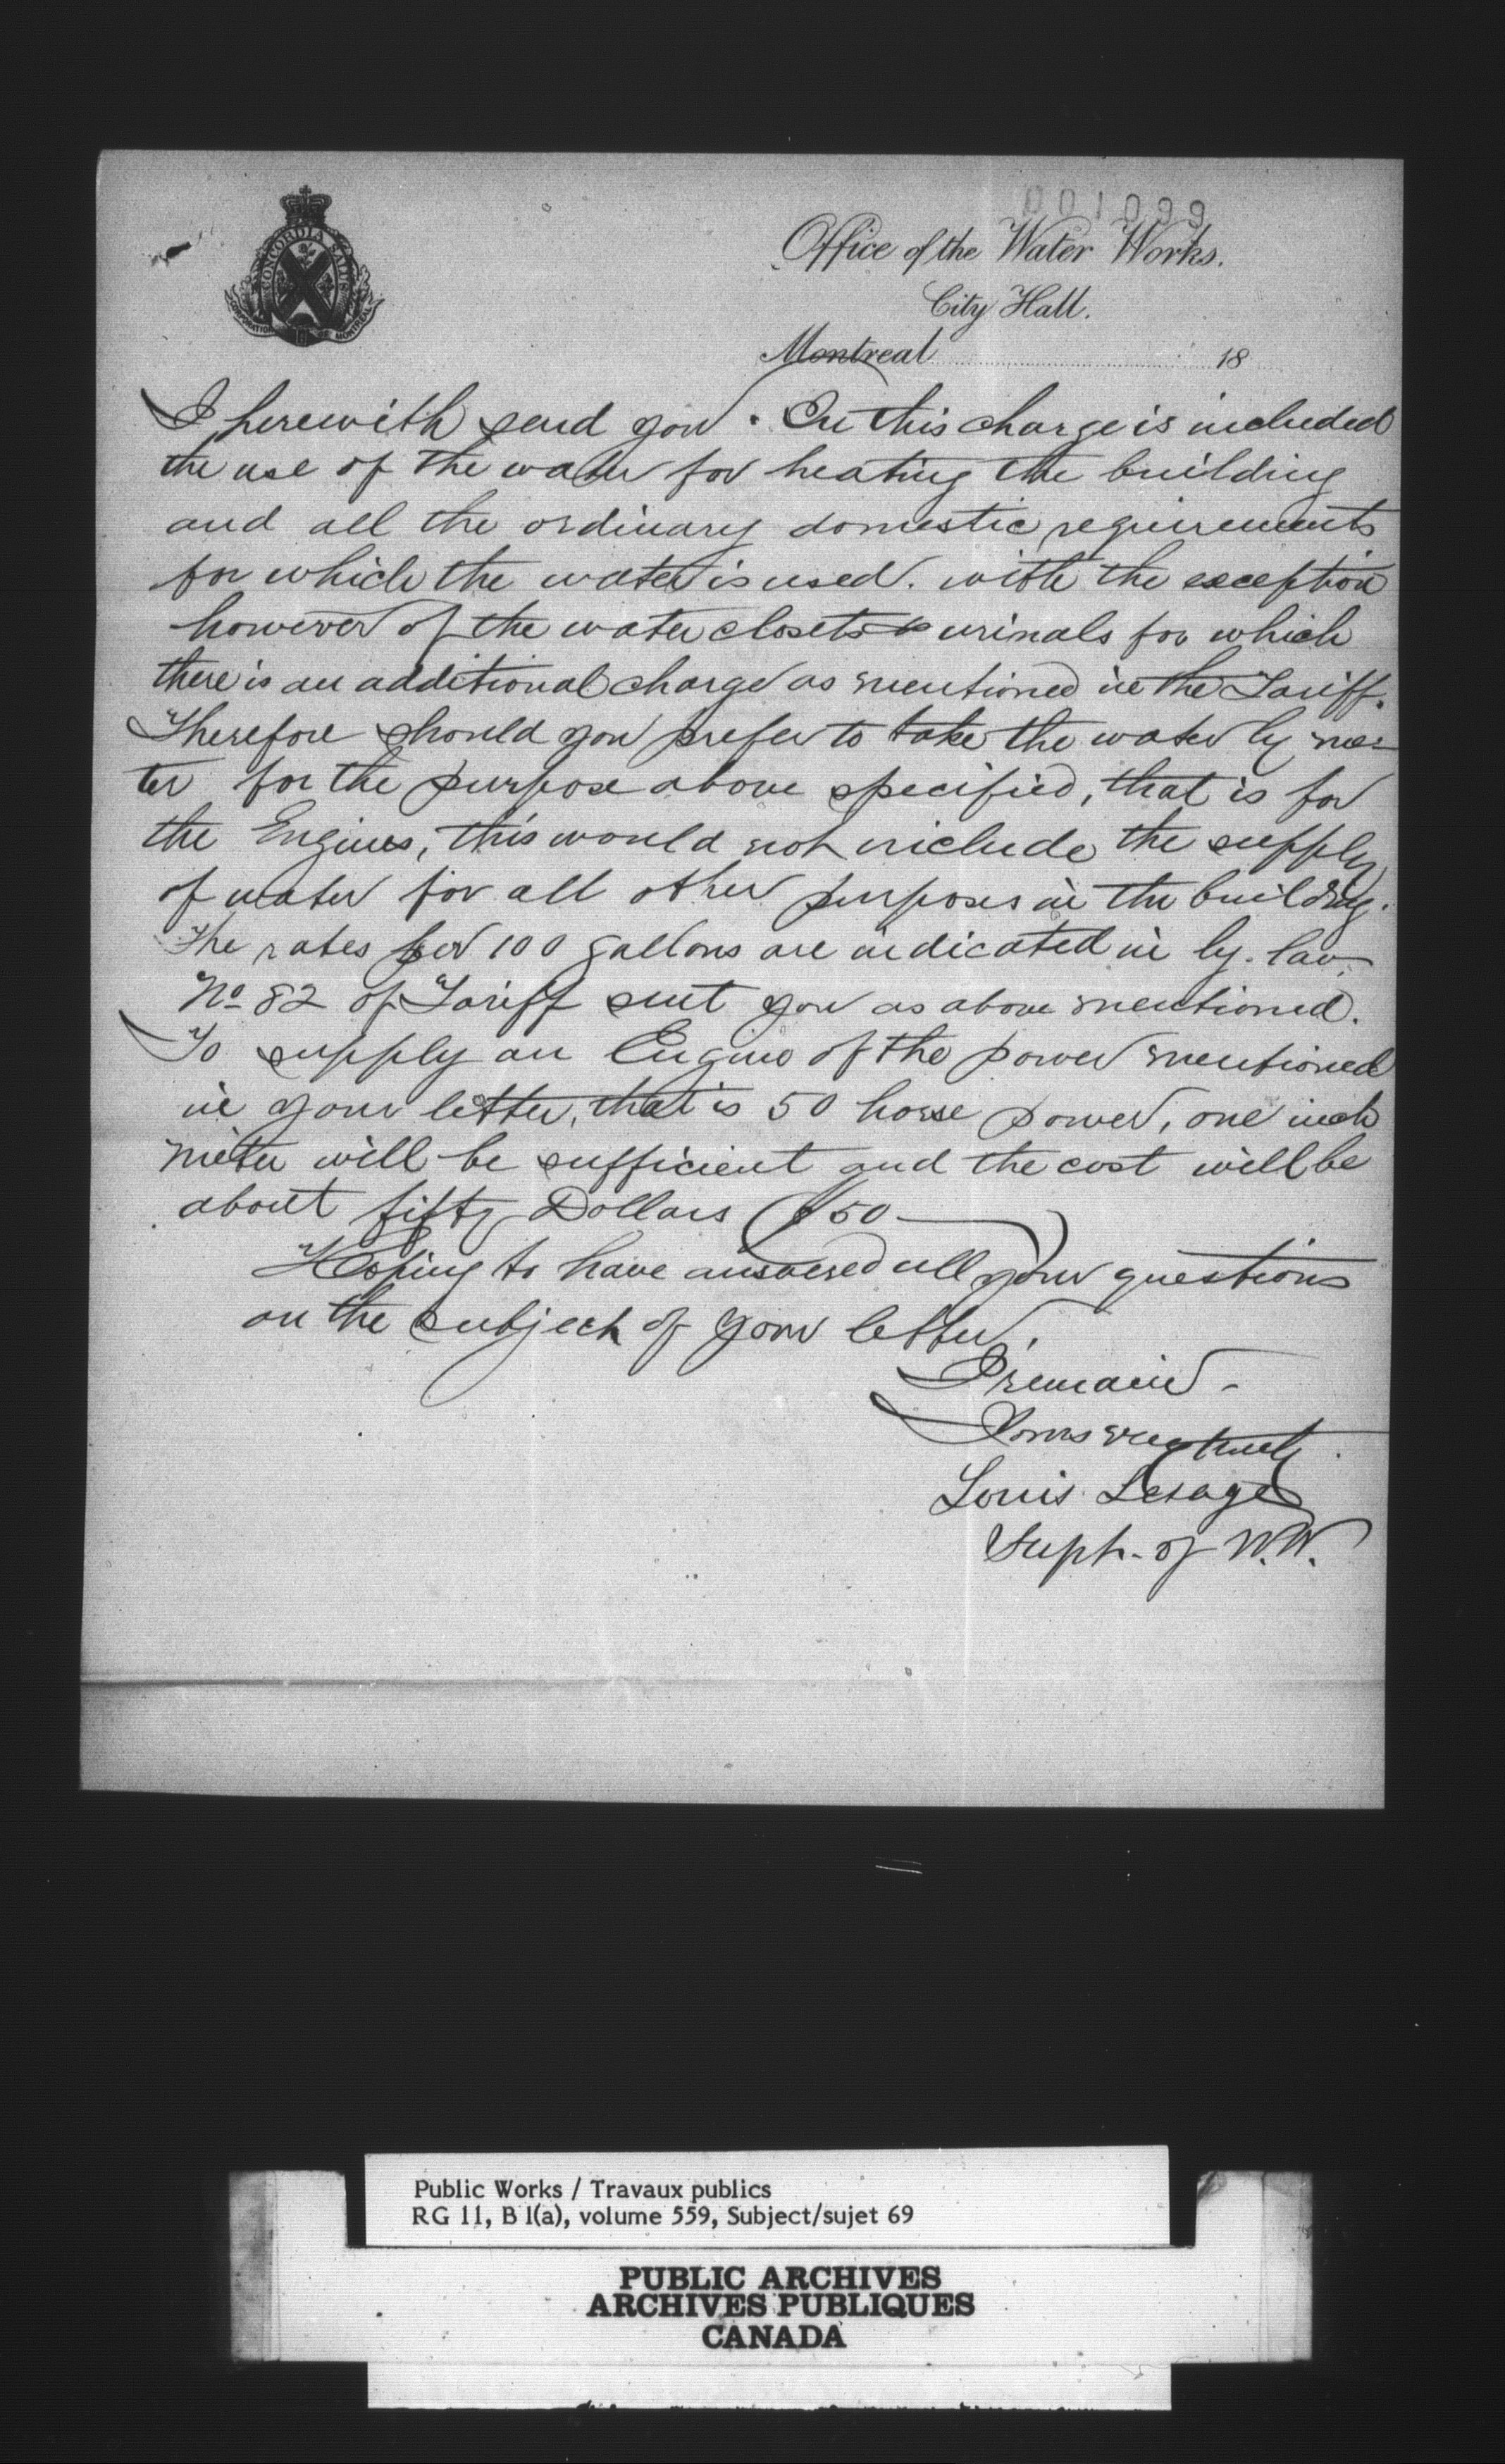 001099
CONCORDIA SALUS
CORPORATION DE MONTREAL
Office of the Water Works.
City Hall.
Montreal 18
I herewith send you. In this charge is included
the use of the water for heating the building
and all the ordinary domestic requirements
for which the water is used. with the exception
however of the water closets & urinals for which
there is an additional charge as mentioned in the Tariff.
Therefore should you prefer to take the water by me=
ter for the purpose above specified, that is for
the Engines, this would not include the supply
of water for all other purposes in the building.
The rates per 100 gallons are indicated in by-law
No 82 of Tariff sent you as above mentioned.
To supply an Engine of the power mentioned
in your letter, that is 50 horse power, one inch
meter will be sufficient and the cost will be
about fifty Dollars ($50—)
Hoping to have answered all your questions
on the subject of your letter,
I remain -
Yours respectfuly
Louis Lesage
Supt. of W.W.
Public Works / Travaux publics
RG 11, B 1(a), volume 559, Subject/sujet 69
PUBLIC ARCHIVES
ARCHIVES PUBLIQUES
CANADA